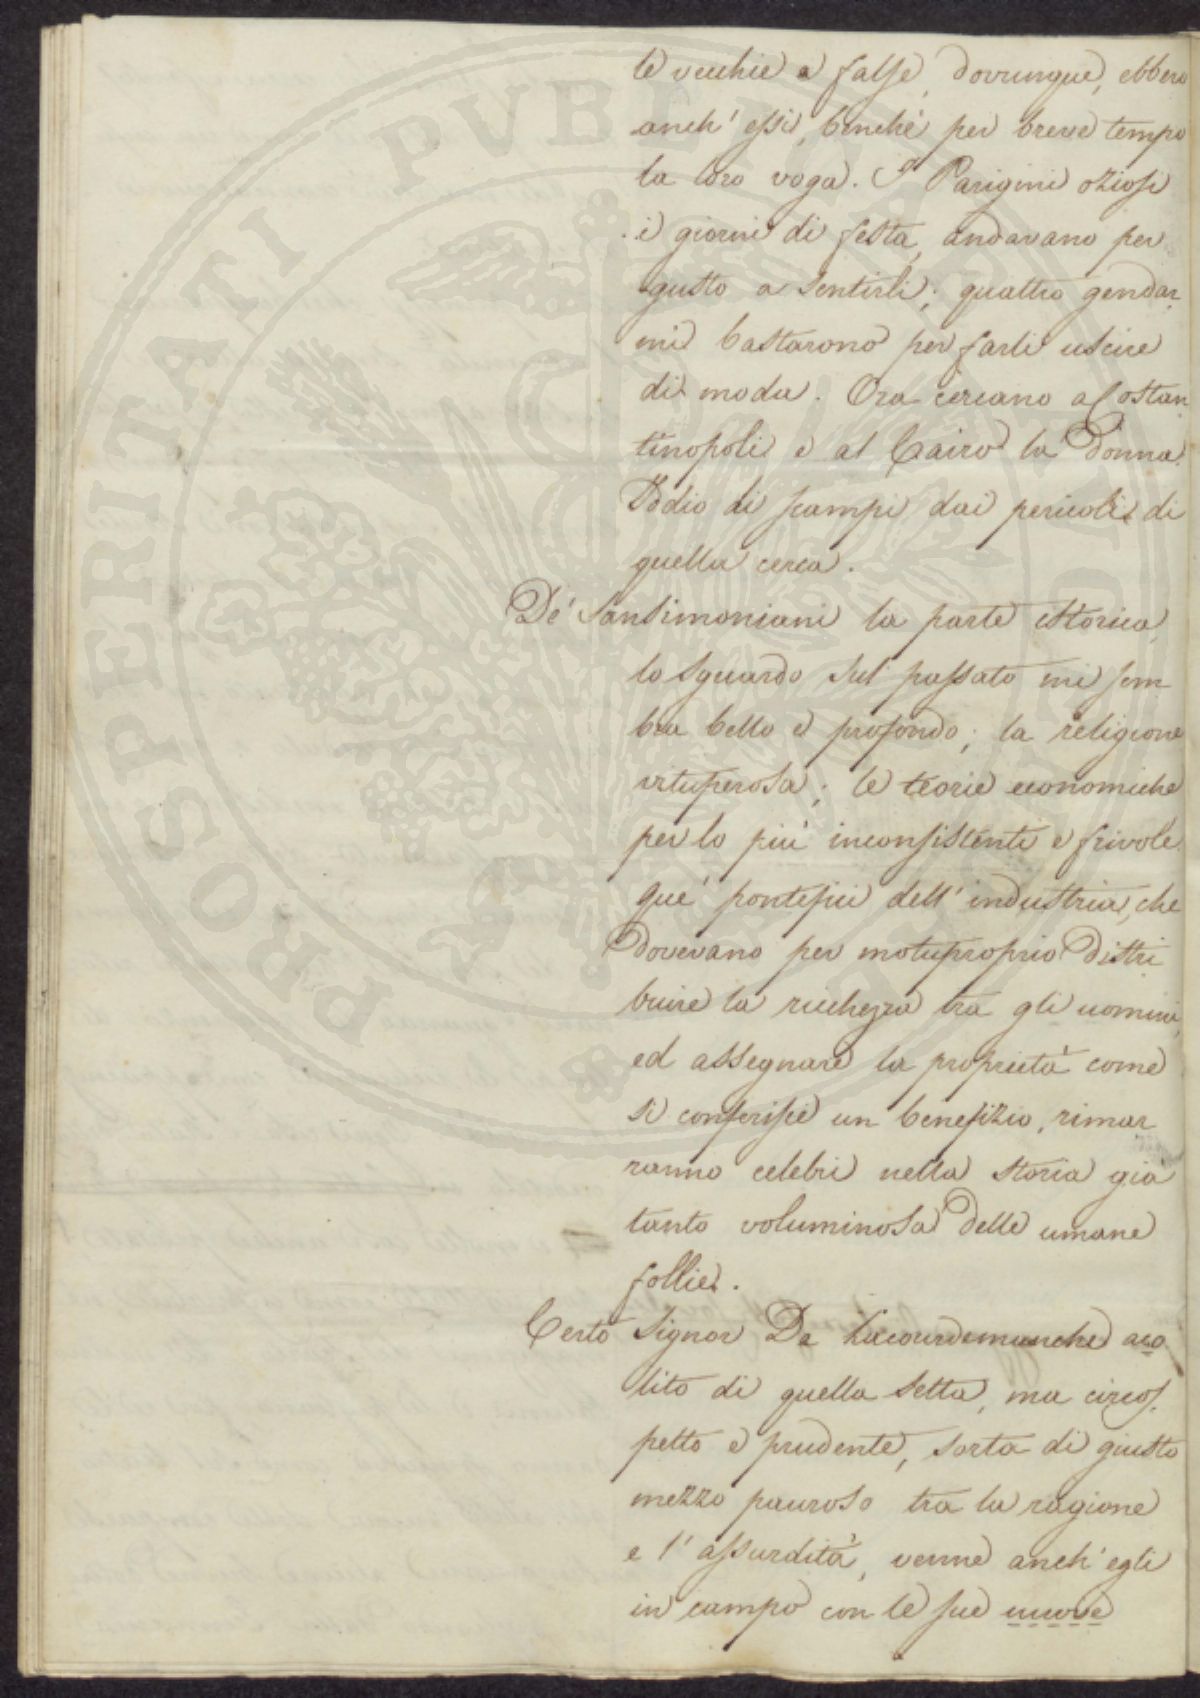 le vecchie e false, dovunque, ebbero
anch' essi, benchè per breve tempo
la loro voga. I Parigini oziosi
i giorni di festa, andavano per
gusto a sentirli; quattro gendar
mi bastarono per farli uscire
di moda. Ora cercano a Costan
tinopoli e al Cairo la Donna.
Iddio li scampi dai pericoli di
quella cerca.
De' Sansimoniani la parte istorica,
lo sguardo sul passato mi sem
bra bello e profondo; la religione
vituperosa; le teorie economiche
per lo più inconsistenti e frivole.
que' pontefici dell' industria, che
dovevano per motuproprio distri
buire la ricchezza tra gli uomini,
ed assegnare la proprietà come
si conferisce un benefizio, rimar
ranno celebri nella storia già
tanto voluminosa delle umane
follie.
Certo Signor De Lacourdemanche aco
lito di quella setta, ma circos
petto e prudente, sorta di giusto
mezzo pauroso tra la ragione
e l' assurdità, venne anch' egli
in campo con le sue nuove
PROSPERITATI PVBLICAE